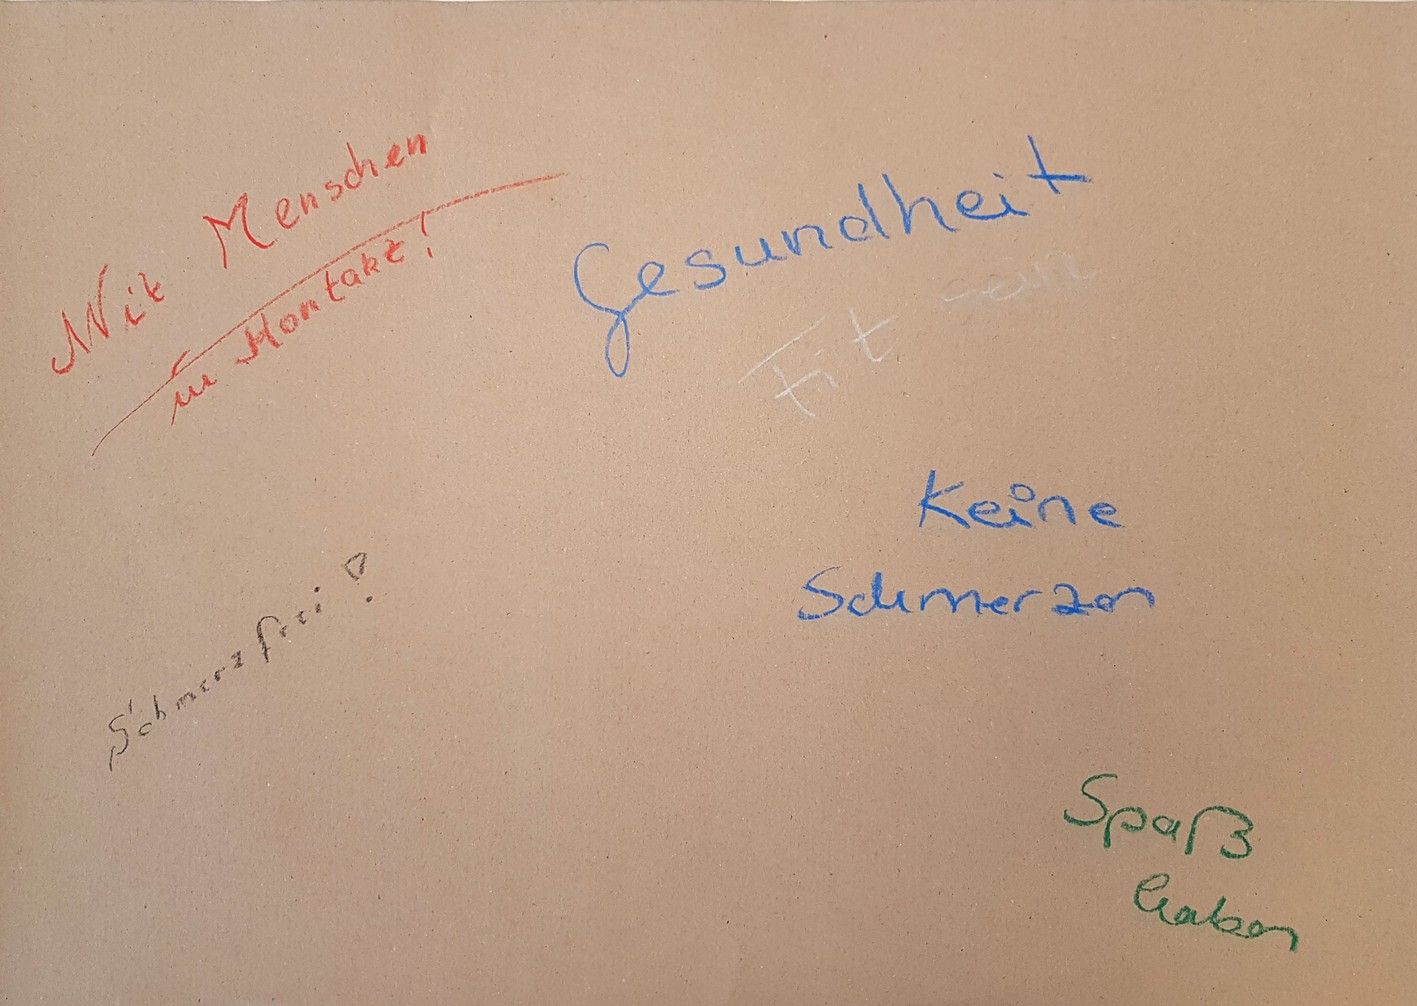 Mit Menschen
in Kontakt!
Gesundheit
Fit sein
Keine
Schmerzen
Schmerzfrei!
Spaß
haben